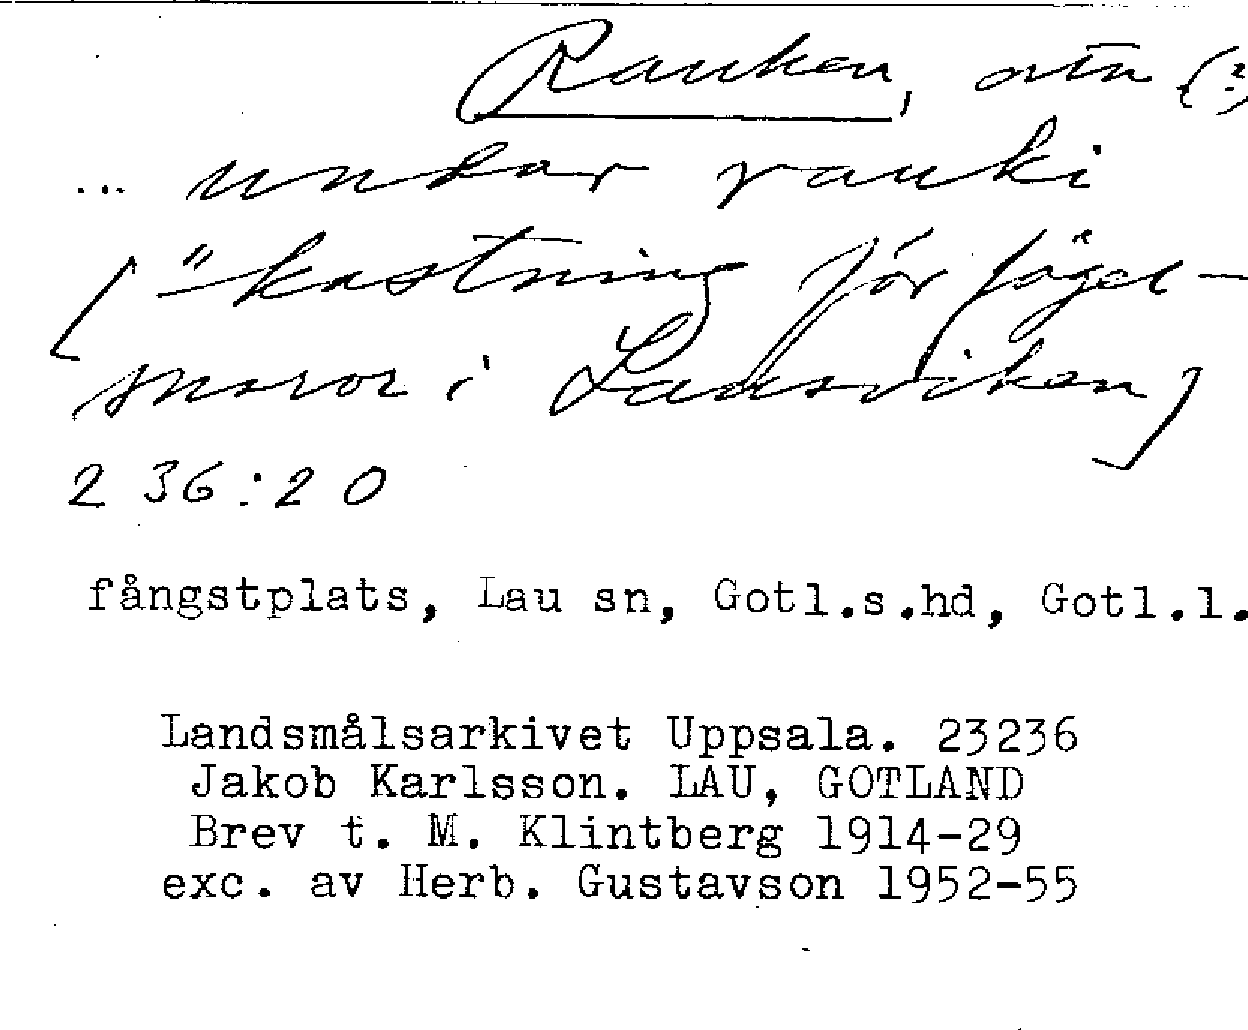 Rauken, ortn (?)
... undar rauki
[ "-kastning för fågel-
snaror i Lausviken]
236:20
fångstplats, Lau sn, Gotl.s.hd, Gotl.l.
Landsmålsarkivet Uppsala. 23236
Jakob Karlsson. LAU, GOTLAND
Brev t. M. Klintberg 1914-29
exc. av Herb. Gustavson 1952-55